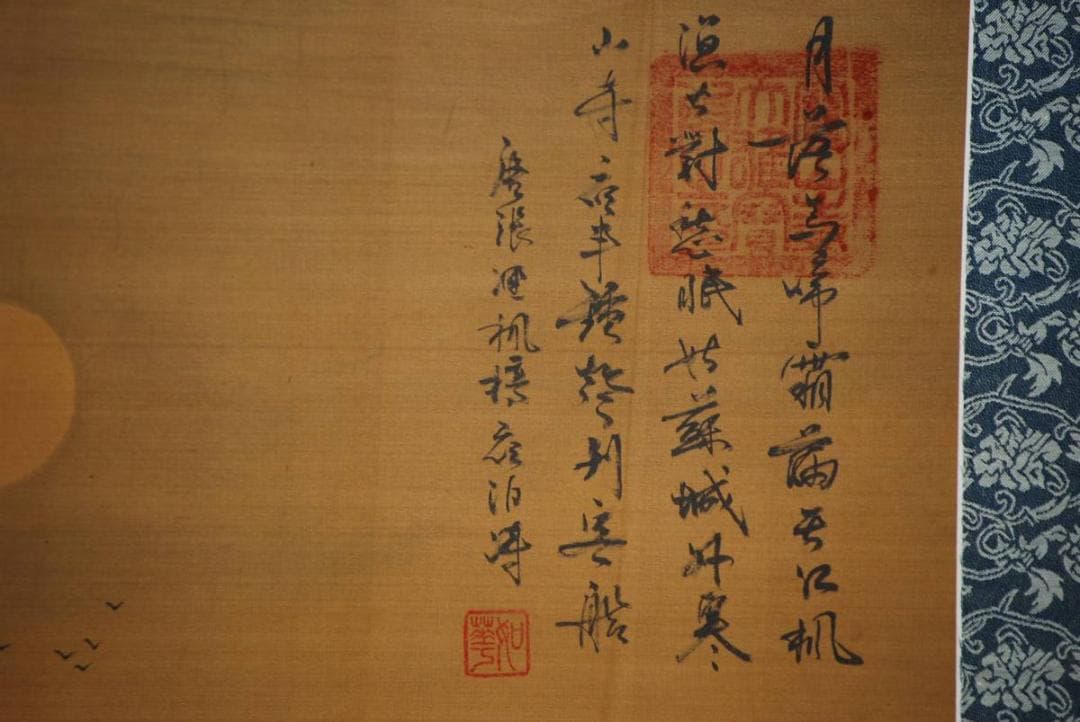 月落烏啼霜滿天江楓
漁火對愁眠姑蘇城外寒
山寺夜半鐘聲到客船
唐張継楓橋夜泊詩
如華